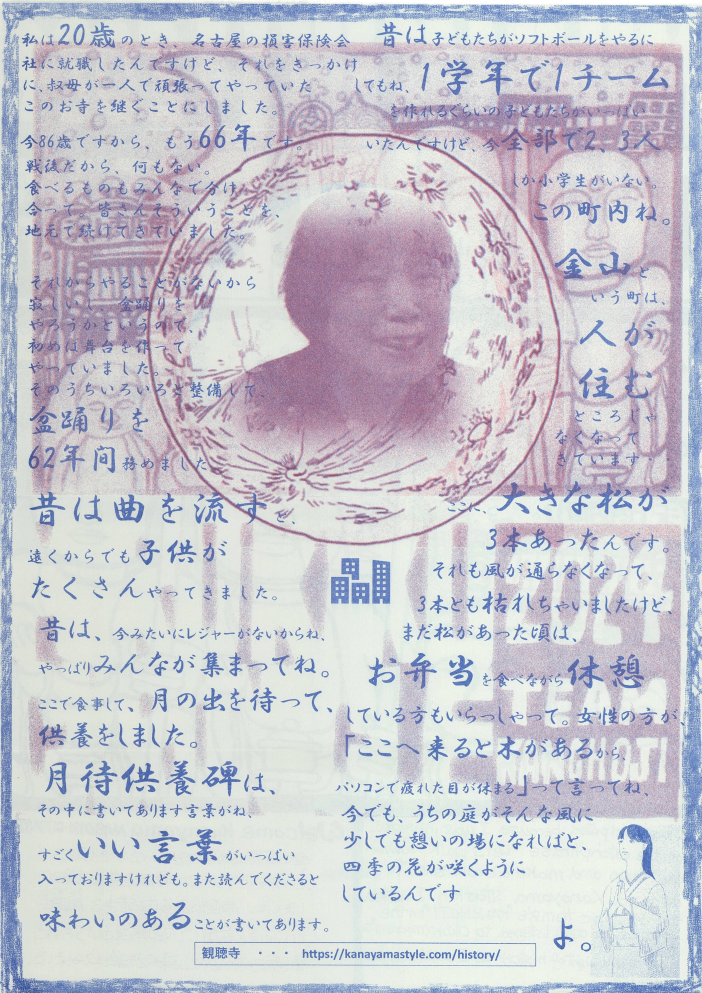 私は20歳のとき、名古屋の損害保険会
社に就職したんですけど、それをきっかけ
に、叔母が一人で頑張ってやっていた
このお寺を継ぐことにしました。
今86歳ですから、もう66年です。
戦後だから、何もない。
食べるものもみんなで分け
合って。皆さんそういうことを、
地元で続けてきていました。
それからやることがないから
寂しいし、盆踊りを
やろうかというので、
初めは舞台を作って
やっていました。
そのうちいろいろと整備して、
盆踊りを
62年間務めました
昔は曲を流すと、
遠くからでも子供が
たくさんやってきました。
昔は、今みたいにレジャーがないからね、
やっぱりみんなが集まってね。
ここで食事して、月の出を待って、
供養をしました。
月待供養碑は、
その中に書いてあります言葉がね、
すごくいい言葉がいっぱい
入っておりますけれども。また読んでくださると
味わいのあることが書いてあります。
昔は子どもたちがソフトボールをやるに
してもね、1学年で1チーム
を作れるぐらいの子どもたちがいっぱい
いたんですけど、今全部で2、3人
しか小学生がいない。
この町内ね。
金山と
いう町は、
人が
住む
ところじゃ
なくなって
きています
ここに、大きな松が
3本あったんです。
それも風が通らなくなって、
3本とも枯れちゃいましたけど、
まだ松があった頃は、
お弁当を食べながら休憩
している方もいらっしゃって。女性の方が、
「ここへ来ると木があるから、
パソコンで疲れた目が休まる」って言ってね、
今でも、うちの庭がそんな風に
少しでも憩いの場になればと、
四季の花が咲くように
しているんです
よ。
観聴寺 ・・・ https://kanayamastyle.com/history/